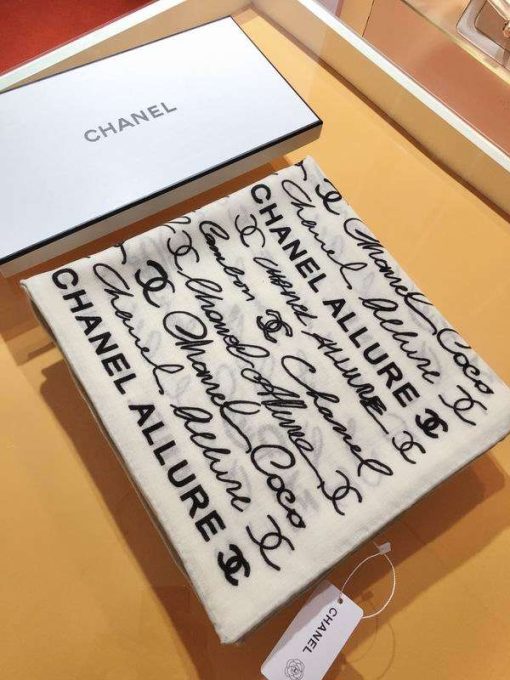 CHANEL
CHANEL ALLURE
Chanel Allure
Chanel Coco
Chanel Allure Coco
Cambon
CHANEL ALLURE
Chanel
CHANEL ALLURE
Chanel Allure
Chanel Coco
CHANEL